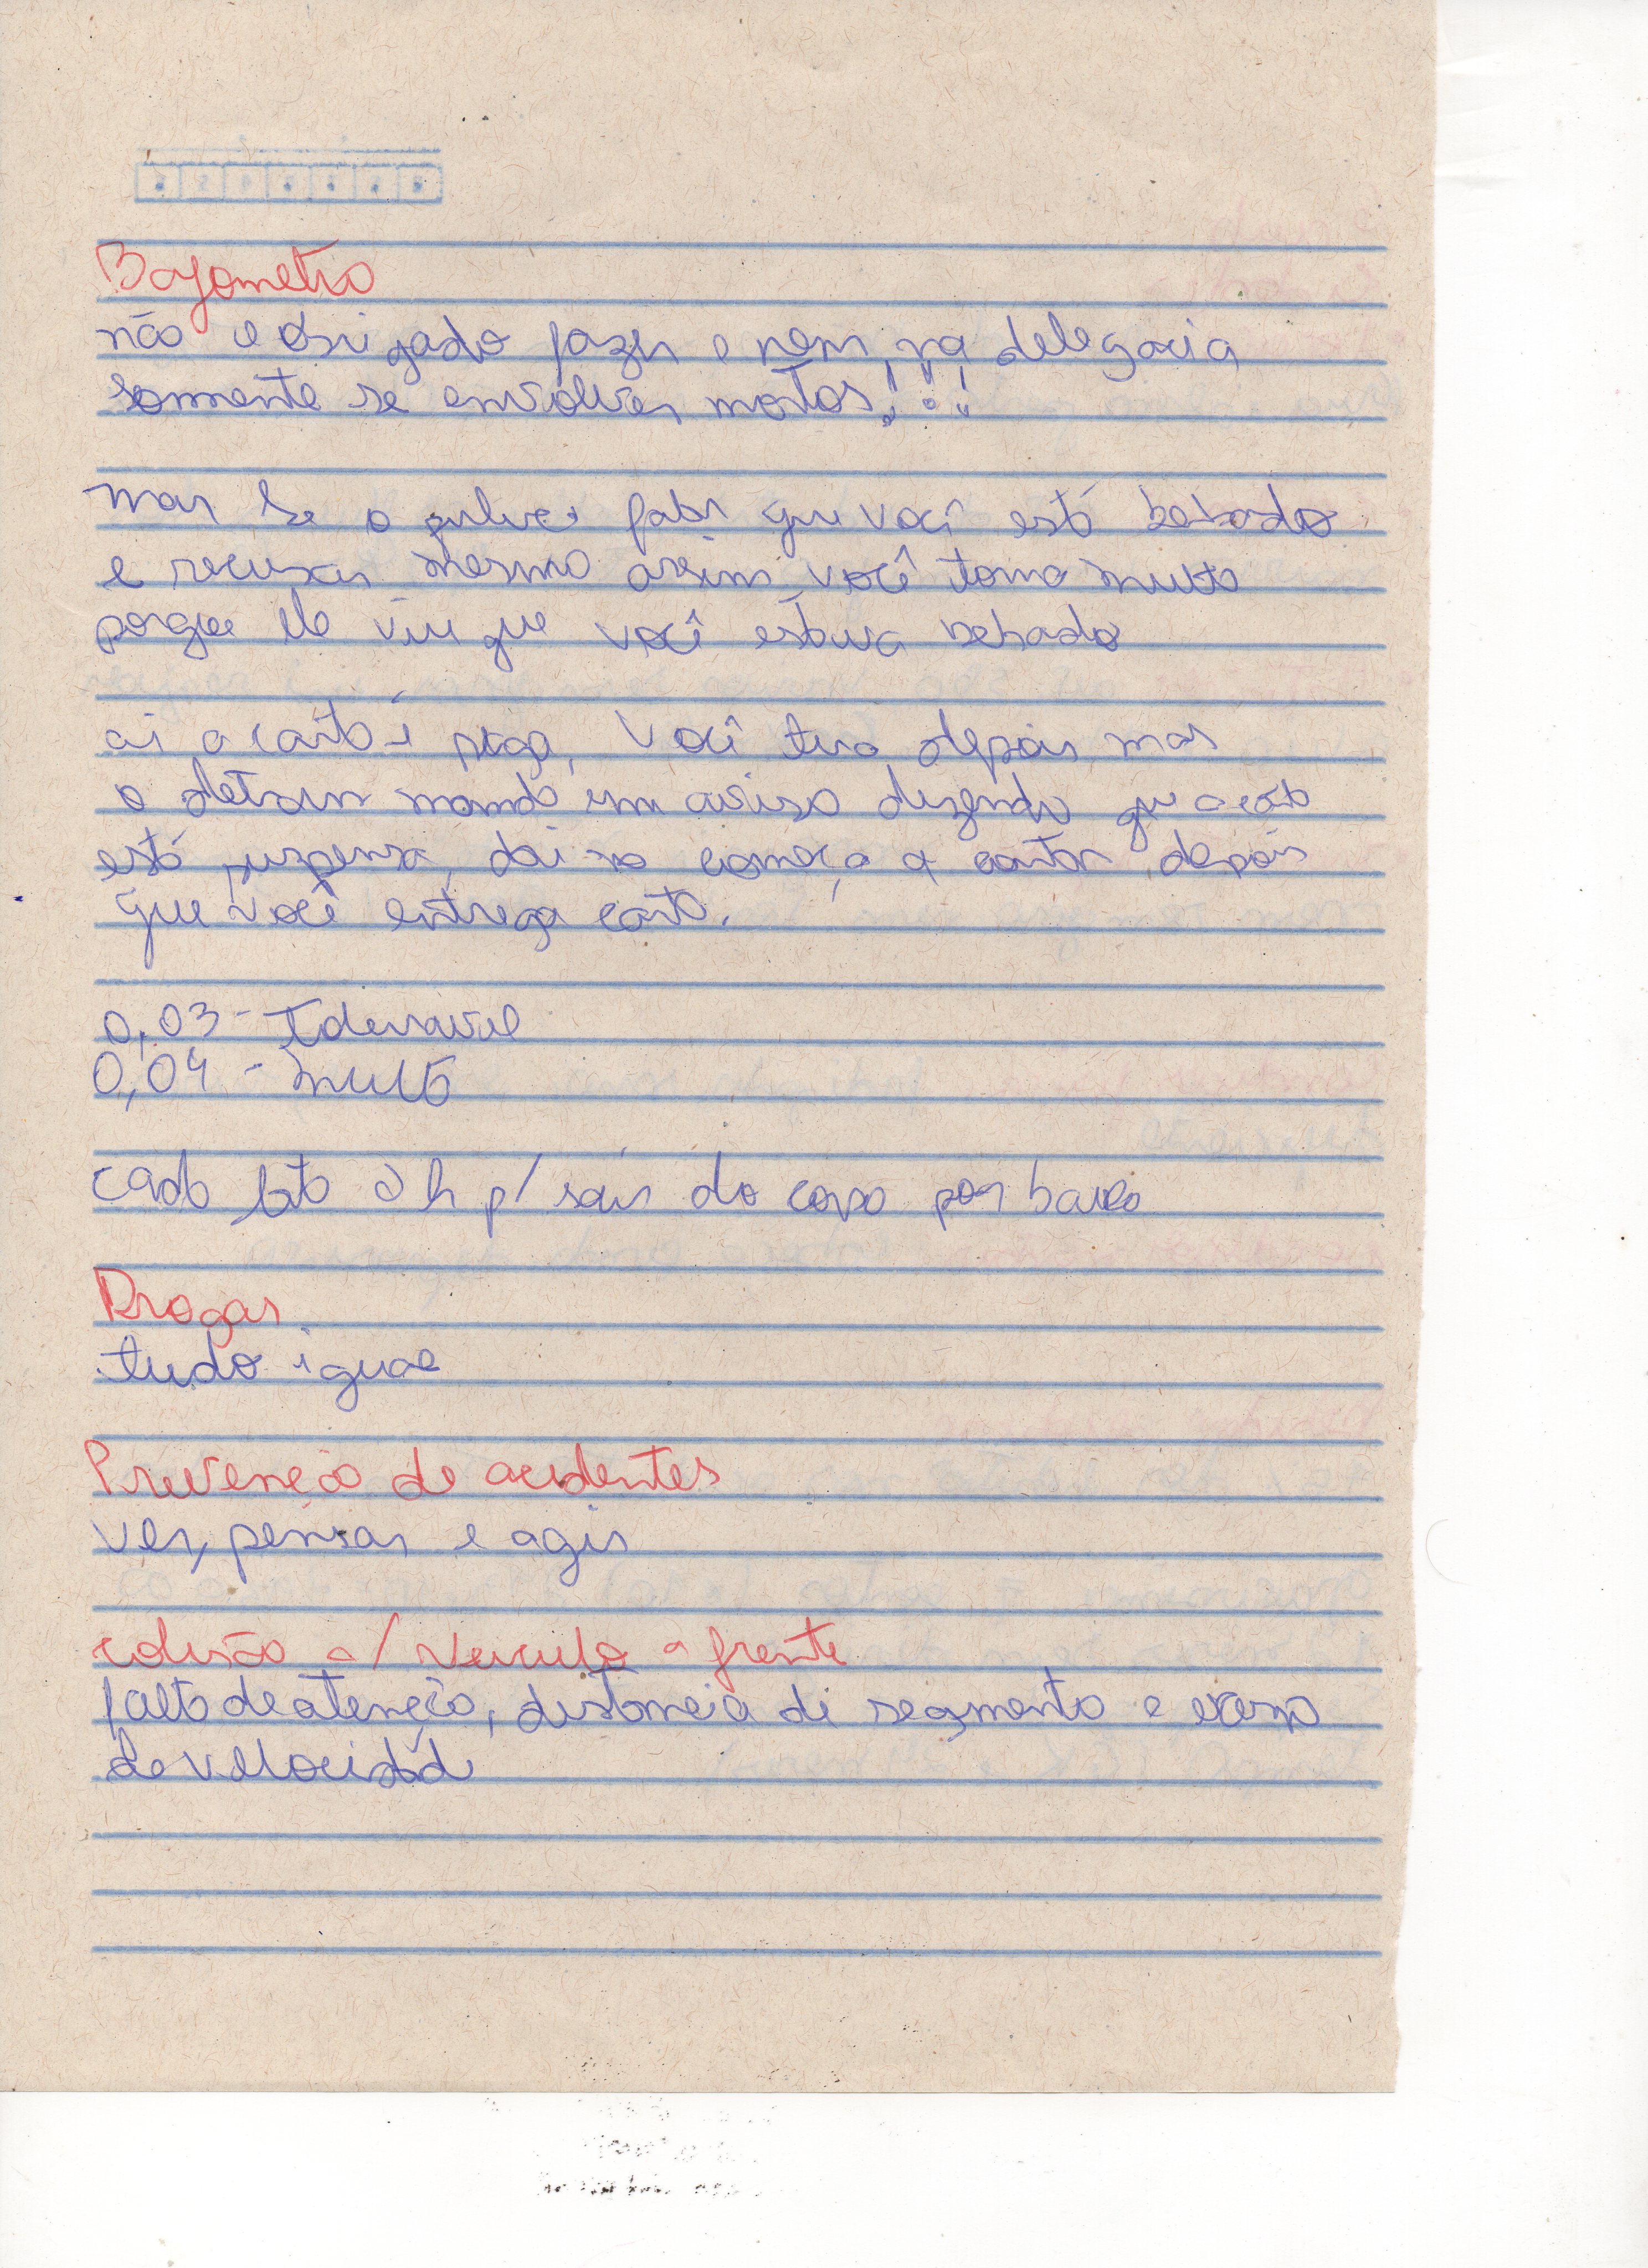 Bafometro
não e obrigado fazer e nem na delegacia
somente se envolver mortos!!!
mas se o policia falar que você está bebado
e recusar mesmo assim você toma multa
porque ele viu que você estava bebado
ai a carta é pega, você tira depois mas
o detran manda um aviso dizendo que a carta
está suspensa, dai so começa a contar depois
que você entrega carta.
0,03 - Tderavel
0,04 - multa
cada lata 2h p/ sair do corpo por baixo
Drogas
tudo igual
Prevenção de acidentes
ver, pensar e agir
colisão c/ veiculo a frente
falta de atenção, distancia de segmento e excesso
de velocidade